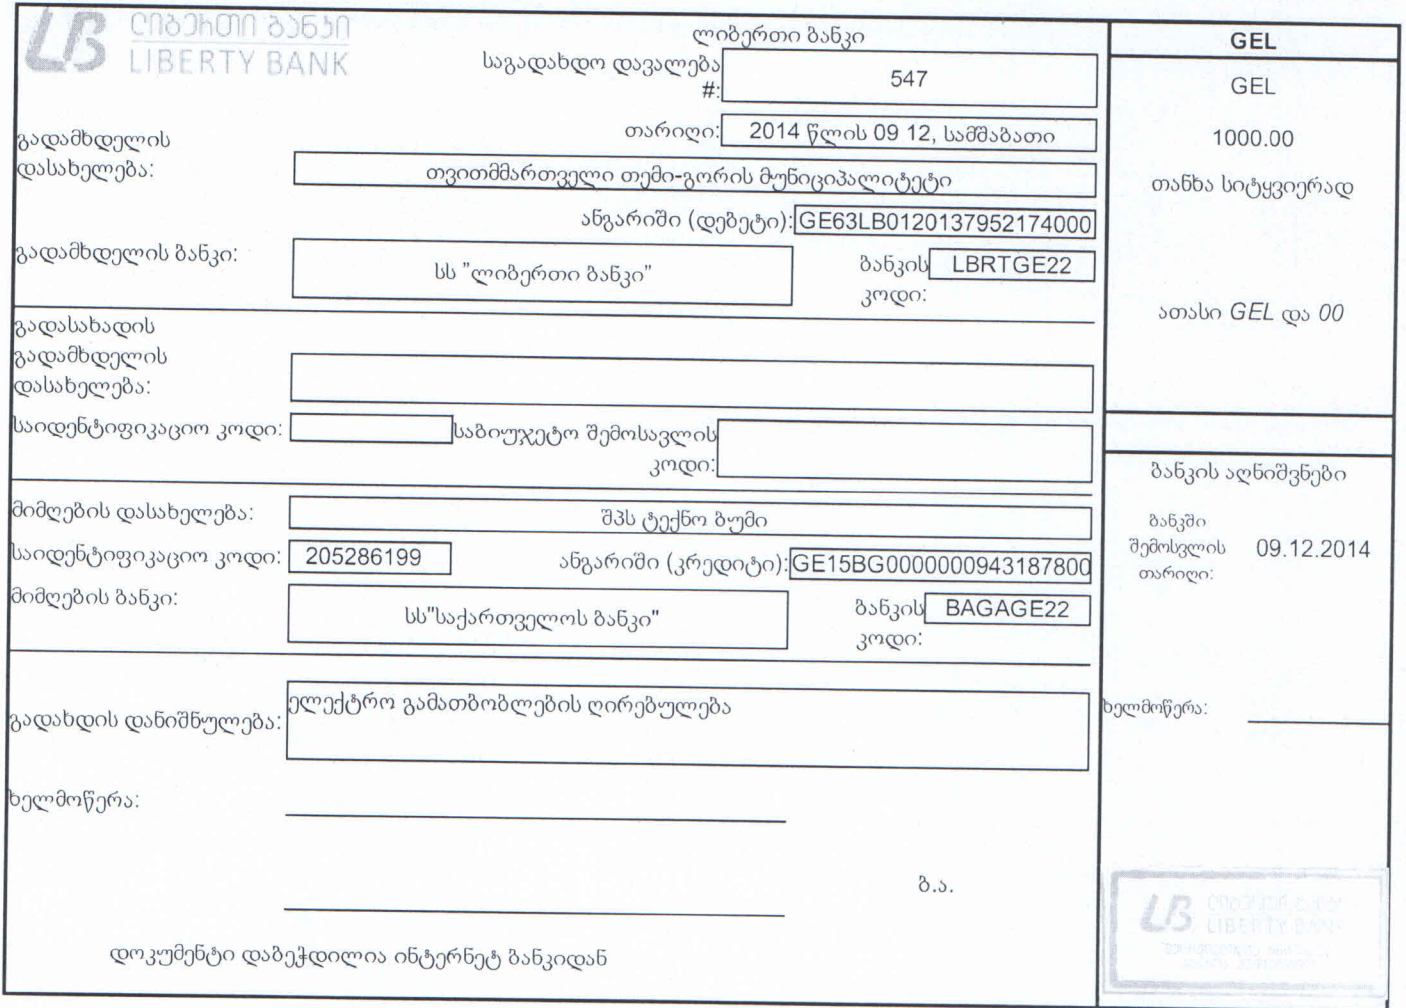 ლიბერთი ბანკი
LIBERTY BANK
ლიბერთი ბანკი
საგადახდო დავალება #: 547
თარიღი: 2014 წლის 09 12, სამშაბათი
გადამხდელის დასახელება: თვითმმართველი თემი-გორის მუნიციპალიტეტი
ანგარიში (დებეტი): GE63LB0120137952174000
გადამხდელის ბანკი: სს "ლიბერთი ბანკი" ბანკის კოდი: LBRTGE22
გადასახადის გადამხდელის დასახელება:
საიდენტიფიკაციო კოდი: საბიუჯეტო შემოსავლის კოდი:
მიმღების დასახელება: შპს ტექნო ბუმი
საიდენტიფიკაციო კოდი: 205286199 ანგარიში (კრედიტი): GE15BG0000000943187800
მიმღების ბანკი: სს"საქართველოს ბანკი" ბანკის კოდი: BAGAGE22
გადახდის დანიშნულება: ელექტრო გამათბობლების ღირებულება
ხელმოწერა:
ბ.ა.
დოკუმენტი დაბეჭდილია ინტერნეტ ბანკიდან
GEL
GEL
1000.00
თანხა სიტყვიერად
ათასი GEL და 00
ბანკის აღნიშვნები
ბანკში შემოსვლის თარიღი: 09.12.2014
ხელმოწერა:
LIBERTY BANK